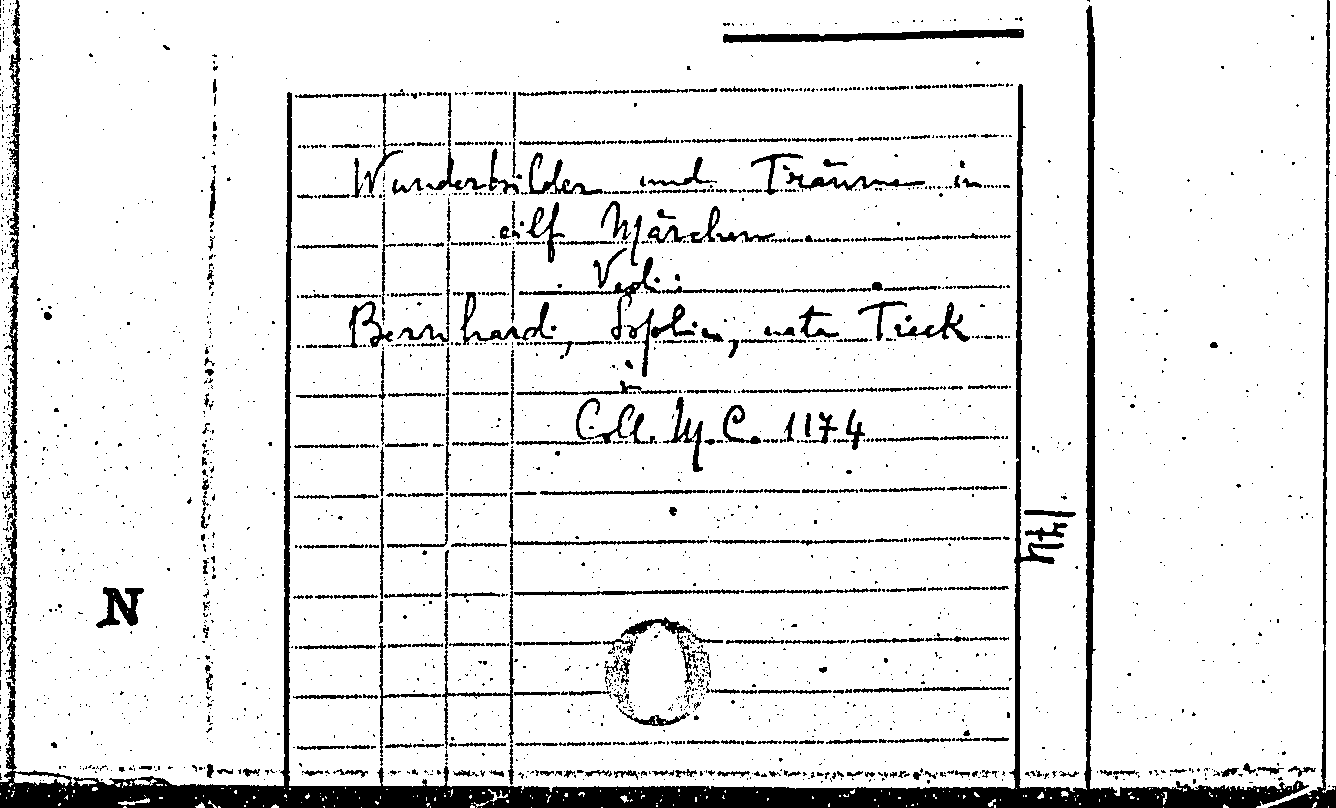 Wunderbilder und Träume in
eilf Märchen.
Vedi:
Bernhardi, Sophie, nata Tieck
Coll. M.C. 1174
N